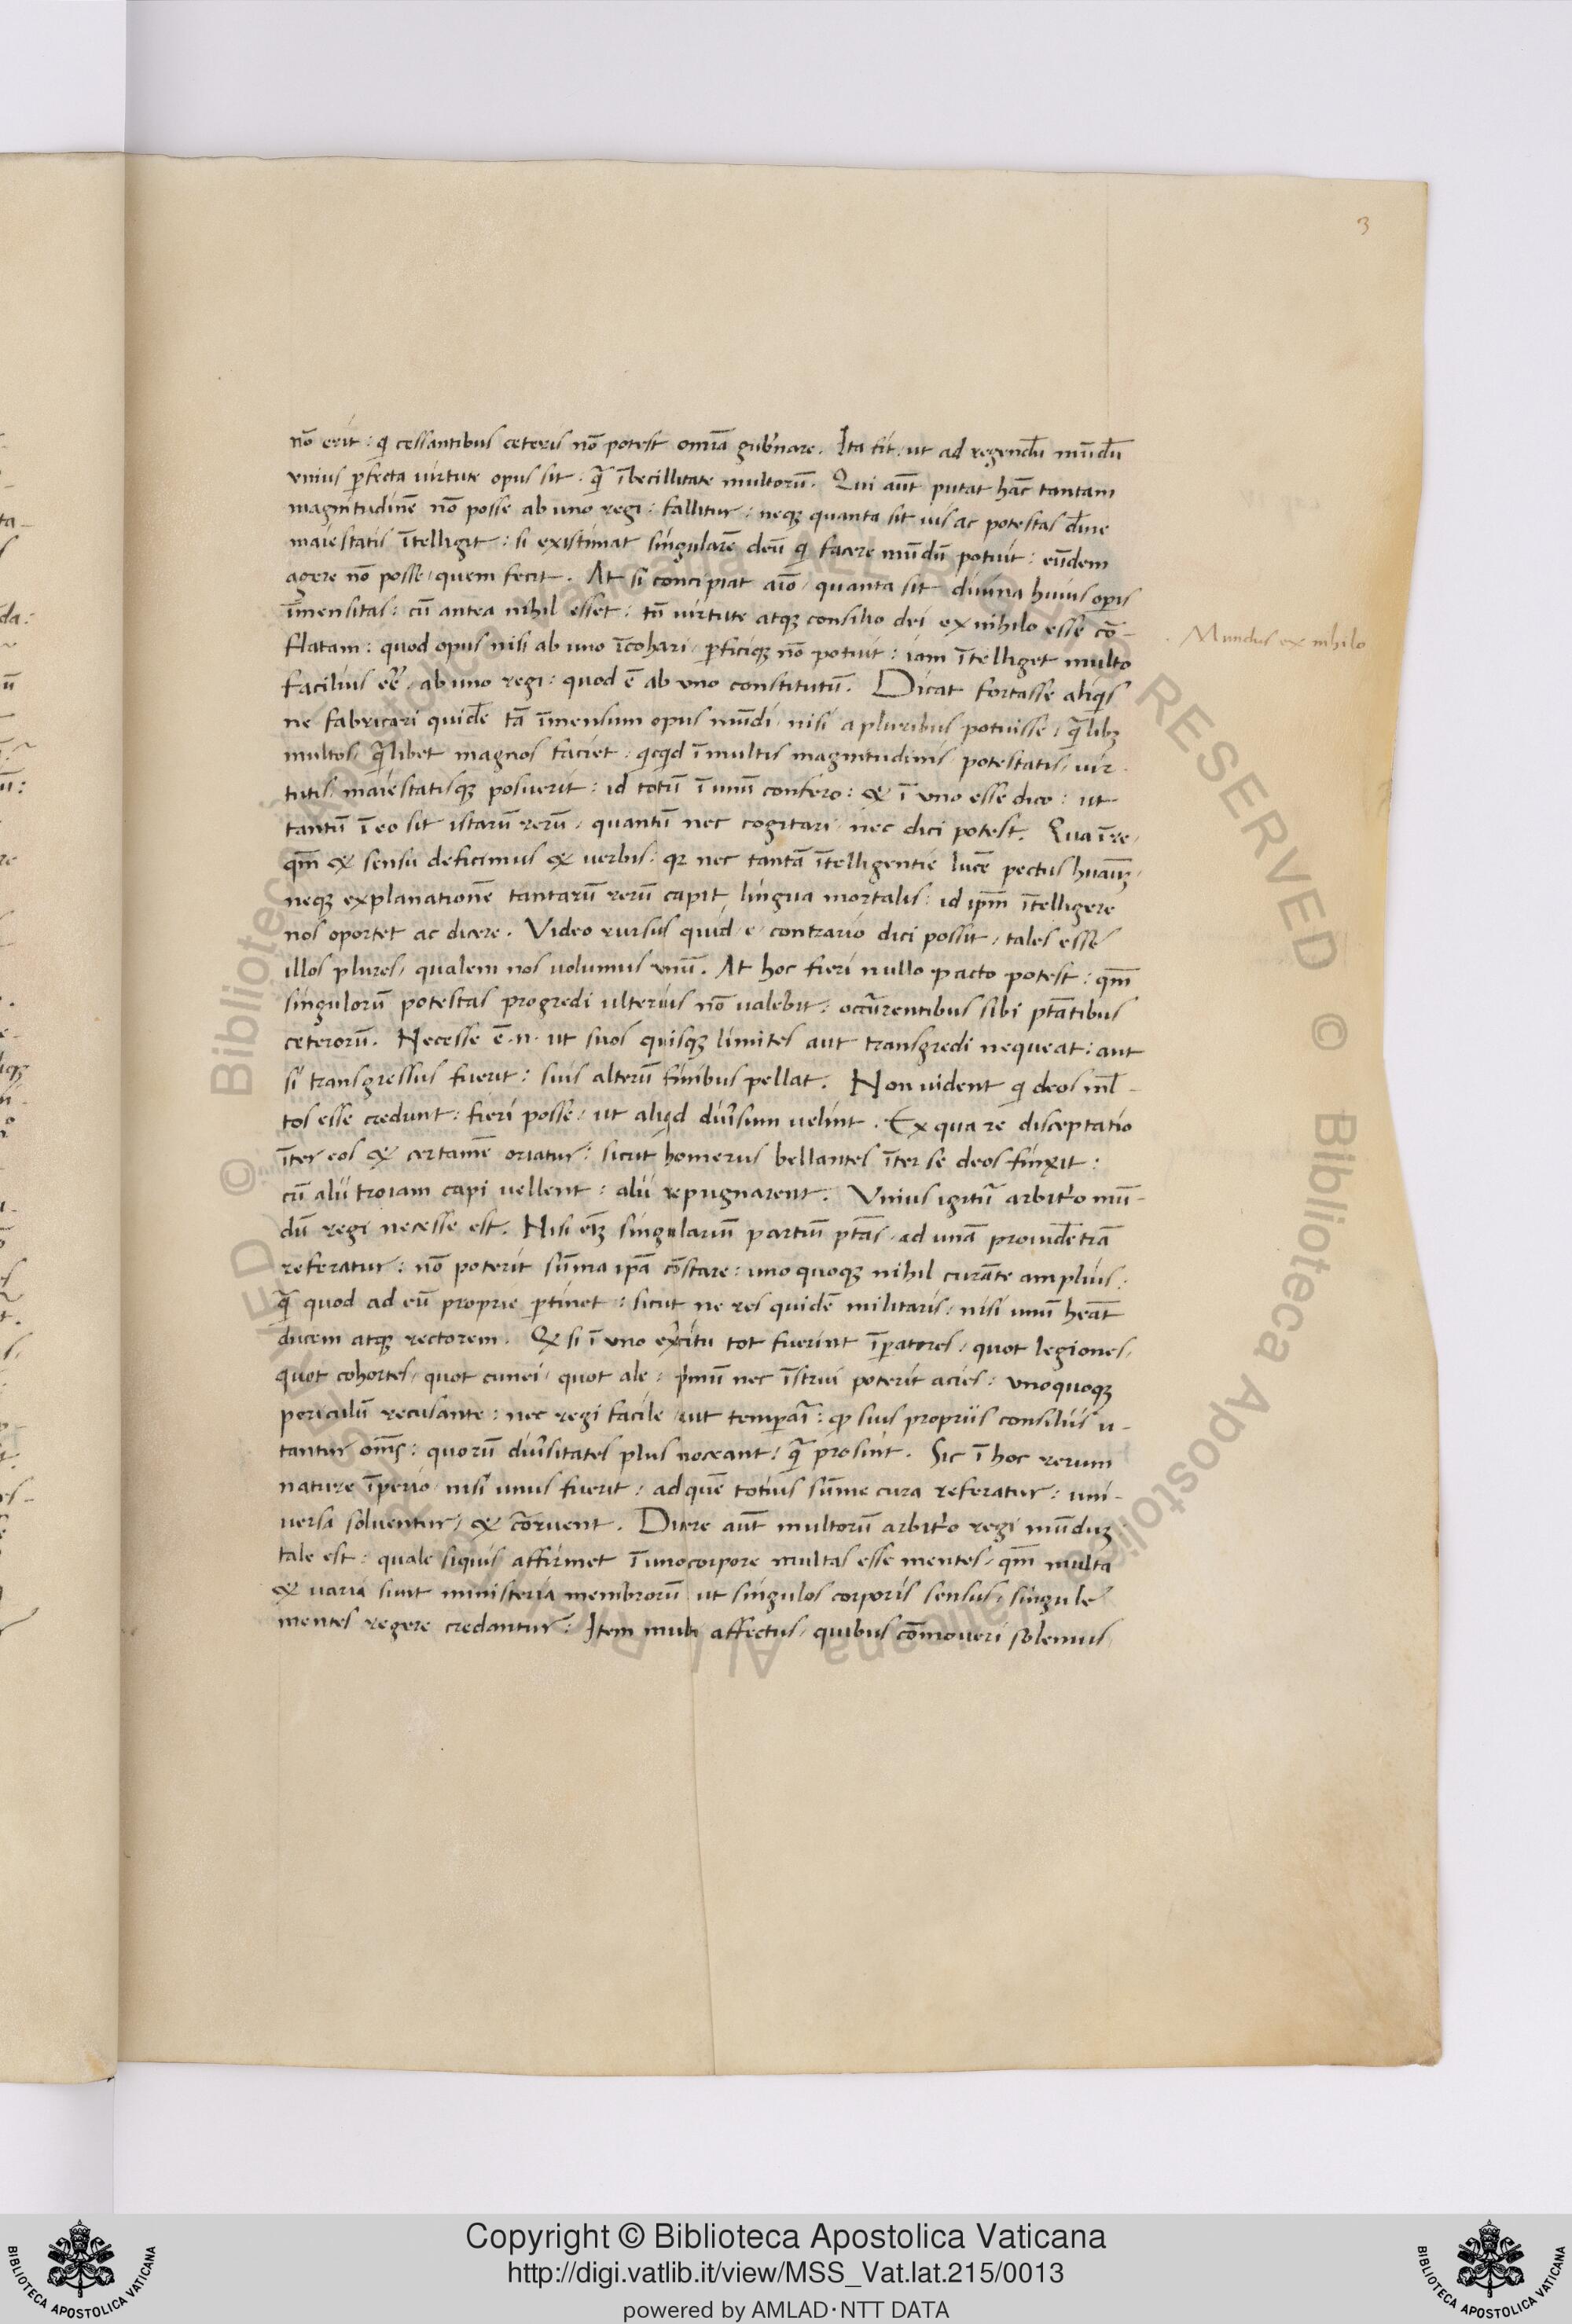 3
nō erit : q cessantibus ceteris nō potest omīa gub'nare . Ita fit , ut ad regendū mūdū
vnius pfecta uirtute opus sit . q̄ ībecillitate multorū . Qui aūt putat hāc tantam
magnitudinē nō posse ab uno regi : fallitur : neqꝫ quanta sit uis ac potestas dīne
maiestatis ītelligit : si existimat singularē deū q facere mūdū potuit : eūdem
agere nō posse , quem fecit . At si concipiat aīo , quanta sit diuina huius opis
īmensitas : cū antea nihil esset : tn̄ uirtute atqꝫ consilio dei ex nihilo esse cō-
flatam : quod opus nisi ab uno īcohari , pficiqꝫ nō potuit : iam ītelliget multo
Mundus ex nihilo
facilius eē , ab uno regi : quod ē ab vno constitutū . Dicat fortasse aliqis
ne fabricari quidē tā īmensum opus mūdi , nisi a pluribus potuisse , q̄libꝫ
multos , q̄libet magnos faciet : qcqd ī multis magnitudinis , potestatis , uir-
tutis , maiestatisqꝫ posuerit : id totū ī unū confero : & ī vno esse dico : ut
tantū ī eo sit istarū rerū , quantū nec cogitari , nec dici potest . Qua ī re ,
qm̄ & sensu deficimus & verbis : qr nec tantā ītelligentie lucē pectus huānū ,
neqꝫ explanationē tantarū rerū capit lingua mortalis : id ipm̄ ītelligere
nos oportet ac dicere . Video rursus quid , e , contrario dici possit , tales esse
illos plures , qualem nos uolumus vnū . At hoc fieri nullo pacto potest : qm̄
singulorū potestas progredi ulterius nō ualebit : occūrentibus sibi ptātibus
ceterorū . Necesse ē .n. ut suos quisqꝫ limites aut transgredi nequeat : aut
si transgressus fuerit : suis alterū finibus pellat . Non uident q deos ml̄-
tos esse credunt : fieri posse , ut aliqd diu'sum uelint . Ex qua re disceptatio
īter eos & certamē oriatur : sicut homerus bellantes īter se deos finxit :
cū alii troiam capi uellent : alii repugnarent . Vnius igitur arbit'o mū-
dū regi necesse est . Nisi eīꝫ singulariū partiū ptās , ad unā prouidētiā
referatur : nō poterit sūma ipā cōstare : uno quoqꝫ nihil curāte amplius :
q̄ quod ad eū proprie ptinet : sicut ne res quidē militaris , nisi unū heāt
ducem atqꝫ rectorem . Q si ī vno exercitu tot fuerint īpatores , quot legiones ,
quot cohortes , quot cunei , quot ale : p'mū nec īstrui poterit acies : vnoquoqꝫ
periculū recusante : nec regi facile , aut tempāi : qp suis propriis consiliis u-
tantur om̄s : quorū diu'sitates plus noceant , q̄ prosint . Sic ī hoc rerum
nature īperio , nisi unus fuerit , ad quē totius sūme cura referatur : uni-
uersa soluentur , & corruent . Dicere aūt multorū arbit'o regi mūduꝫ
tale est : quale siquis affirmet ī uno corpore multas esse mentes , qm̄ multa
& uaria sunt ministeria membrorū , ut singulos corporis sensus , singule
mentes regere credantur : Item multi affectus , quibus cōmoueri solemus ,
Copyright © Biblioteca Apostolica Vaticana
http://digi.vatlib.it/view/MSS_Vat.lat.215/0013
powered by AMLAD·NTT DATA
BIBLIOTECA APOSTOLICA VATICANA
BIBLIOTECA APOSTOLICA VATICANA